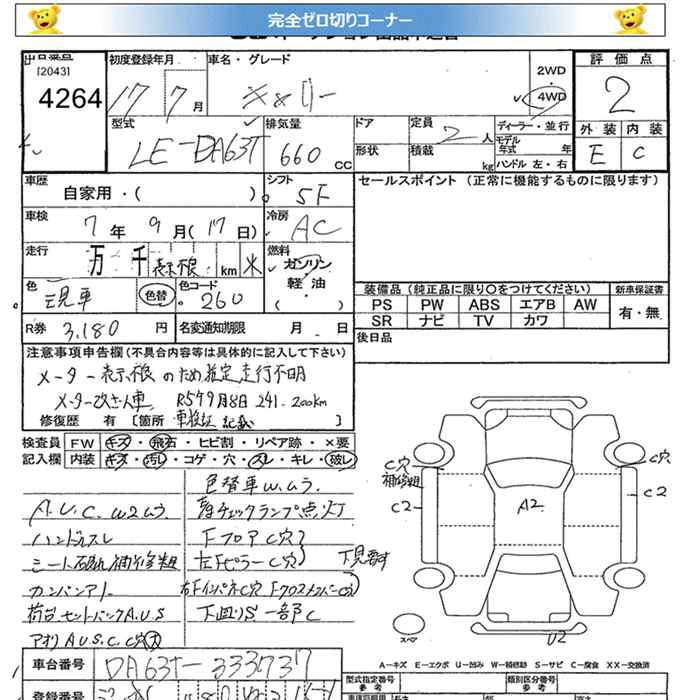 完全ゼロ切りコーナー
[2043]
4264
初度登録年月
17 7 月
車名・グレード
キャリー
2WD
・
4WD
評価点
2
外装 内装
E C
型式
LE-DA63T
排気量
660 CC
ドア
形状
定員 2 人
積載 kg
ディーラー・並行
モデル年式 年
ハンドル 左・右
車歴
自家用・( )
シフト
5F
セールスポイント (正常に機能するものに限ります)
車検
7 年 9 月(17 日)
冷房
AC
走行
万 千 表示不良 km ※
燃料
ガソリン
・
軽油
( )
色
現車
色替
色コード
260
装備品 (純正品に限り○をつけてください)
新車保証書
PS PW ABS エアB AW
SR ナビ TV カワ
有・無
R券 3,180 円
名変通知期限 月 日
後日品
注意事項申告欄(不具合内容等は具体的に記入して下さい)
メーター表示不良のため推定走行不明
メーター改ざん車 R5年9月8日 241,200km
修復歴 有 [箇所 車検証記載 ]
検査員 FW キズ・飛石・ヒビ割・リペア跡・×要
記入欄 内装 キズ・汚れ・コゲ・穴・スレ・キレ・破レ
色替車W.ムラ.
A.U.C. W2ムラ
チェックランプ点灯
ハンドルスレ
FフロアC穴
シート破れ補修粗
左FピラーC穴
下見要す
カンバンアト
右FインパネC穴 FクロスメンバーC穴
荷台セットバックA.U.S
下回りS.一部C
アオリA.U.S.C.C穴
C穴
補修粗
C2
A2
C穴
C2
スペア
U2
A-キズ E-エクボ U-凹み W-補修跡 S-サビ C-腐食 XX-交換済
車台番号 DA63T-333737
型式指定番号
参考
類別区分番号
参考
登録番号